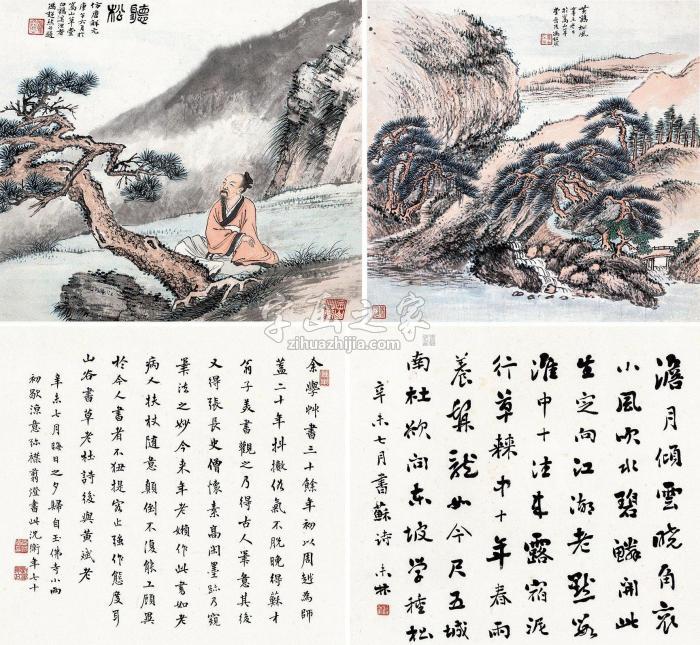 聽松
仿唐解元
庚午六月於
嵩山草堂
馮超然
黃鶴松風
於嵩山草
字画之家
zihuazhijia.com
澹月傾雲曉角哀
小風吹水碧鱗開此
生定向江湖老默數
淮中十往來露宿泥
行草棘中十年春雨
養髯龍如今尺五城
南杜欲問東坡學種松
辛未七月書蘇詩
余學艸書三十餘年初以周越為師
蓋二十年抖擻俗氣不脫晚得蘇才
翁子美書觀之乃得古人筆意其後
又得張長史僧懷素高閑墨跡乃窺
筆法之妙今來年老嬾作此書如老
病人扶杖隨意顛倒不復能工顧異
於今人書者不紐提容止強作態度耳
山谷書草老杜詩後與黃斌老
辛未七月晦日之夕歸自玉佛寺小雨
初歇涼意弥襟翦燈書此沈衛年七十